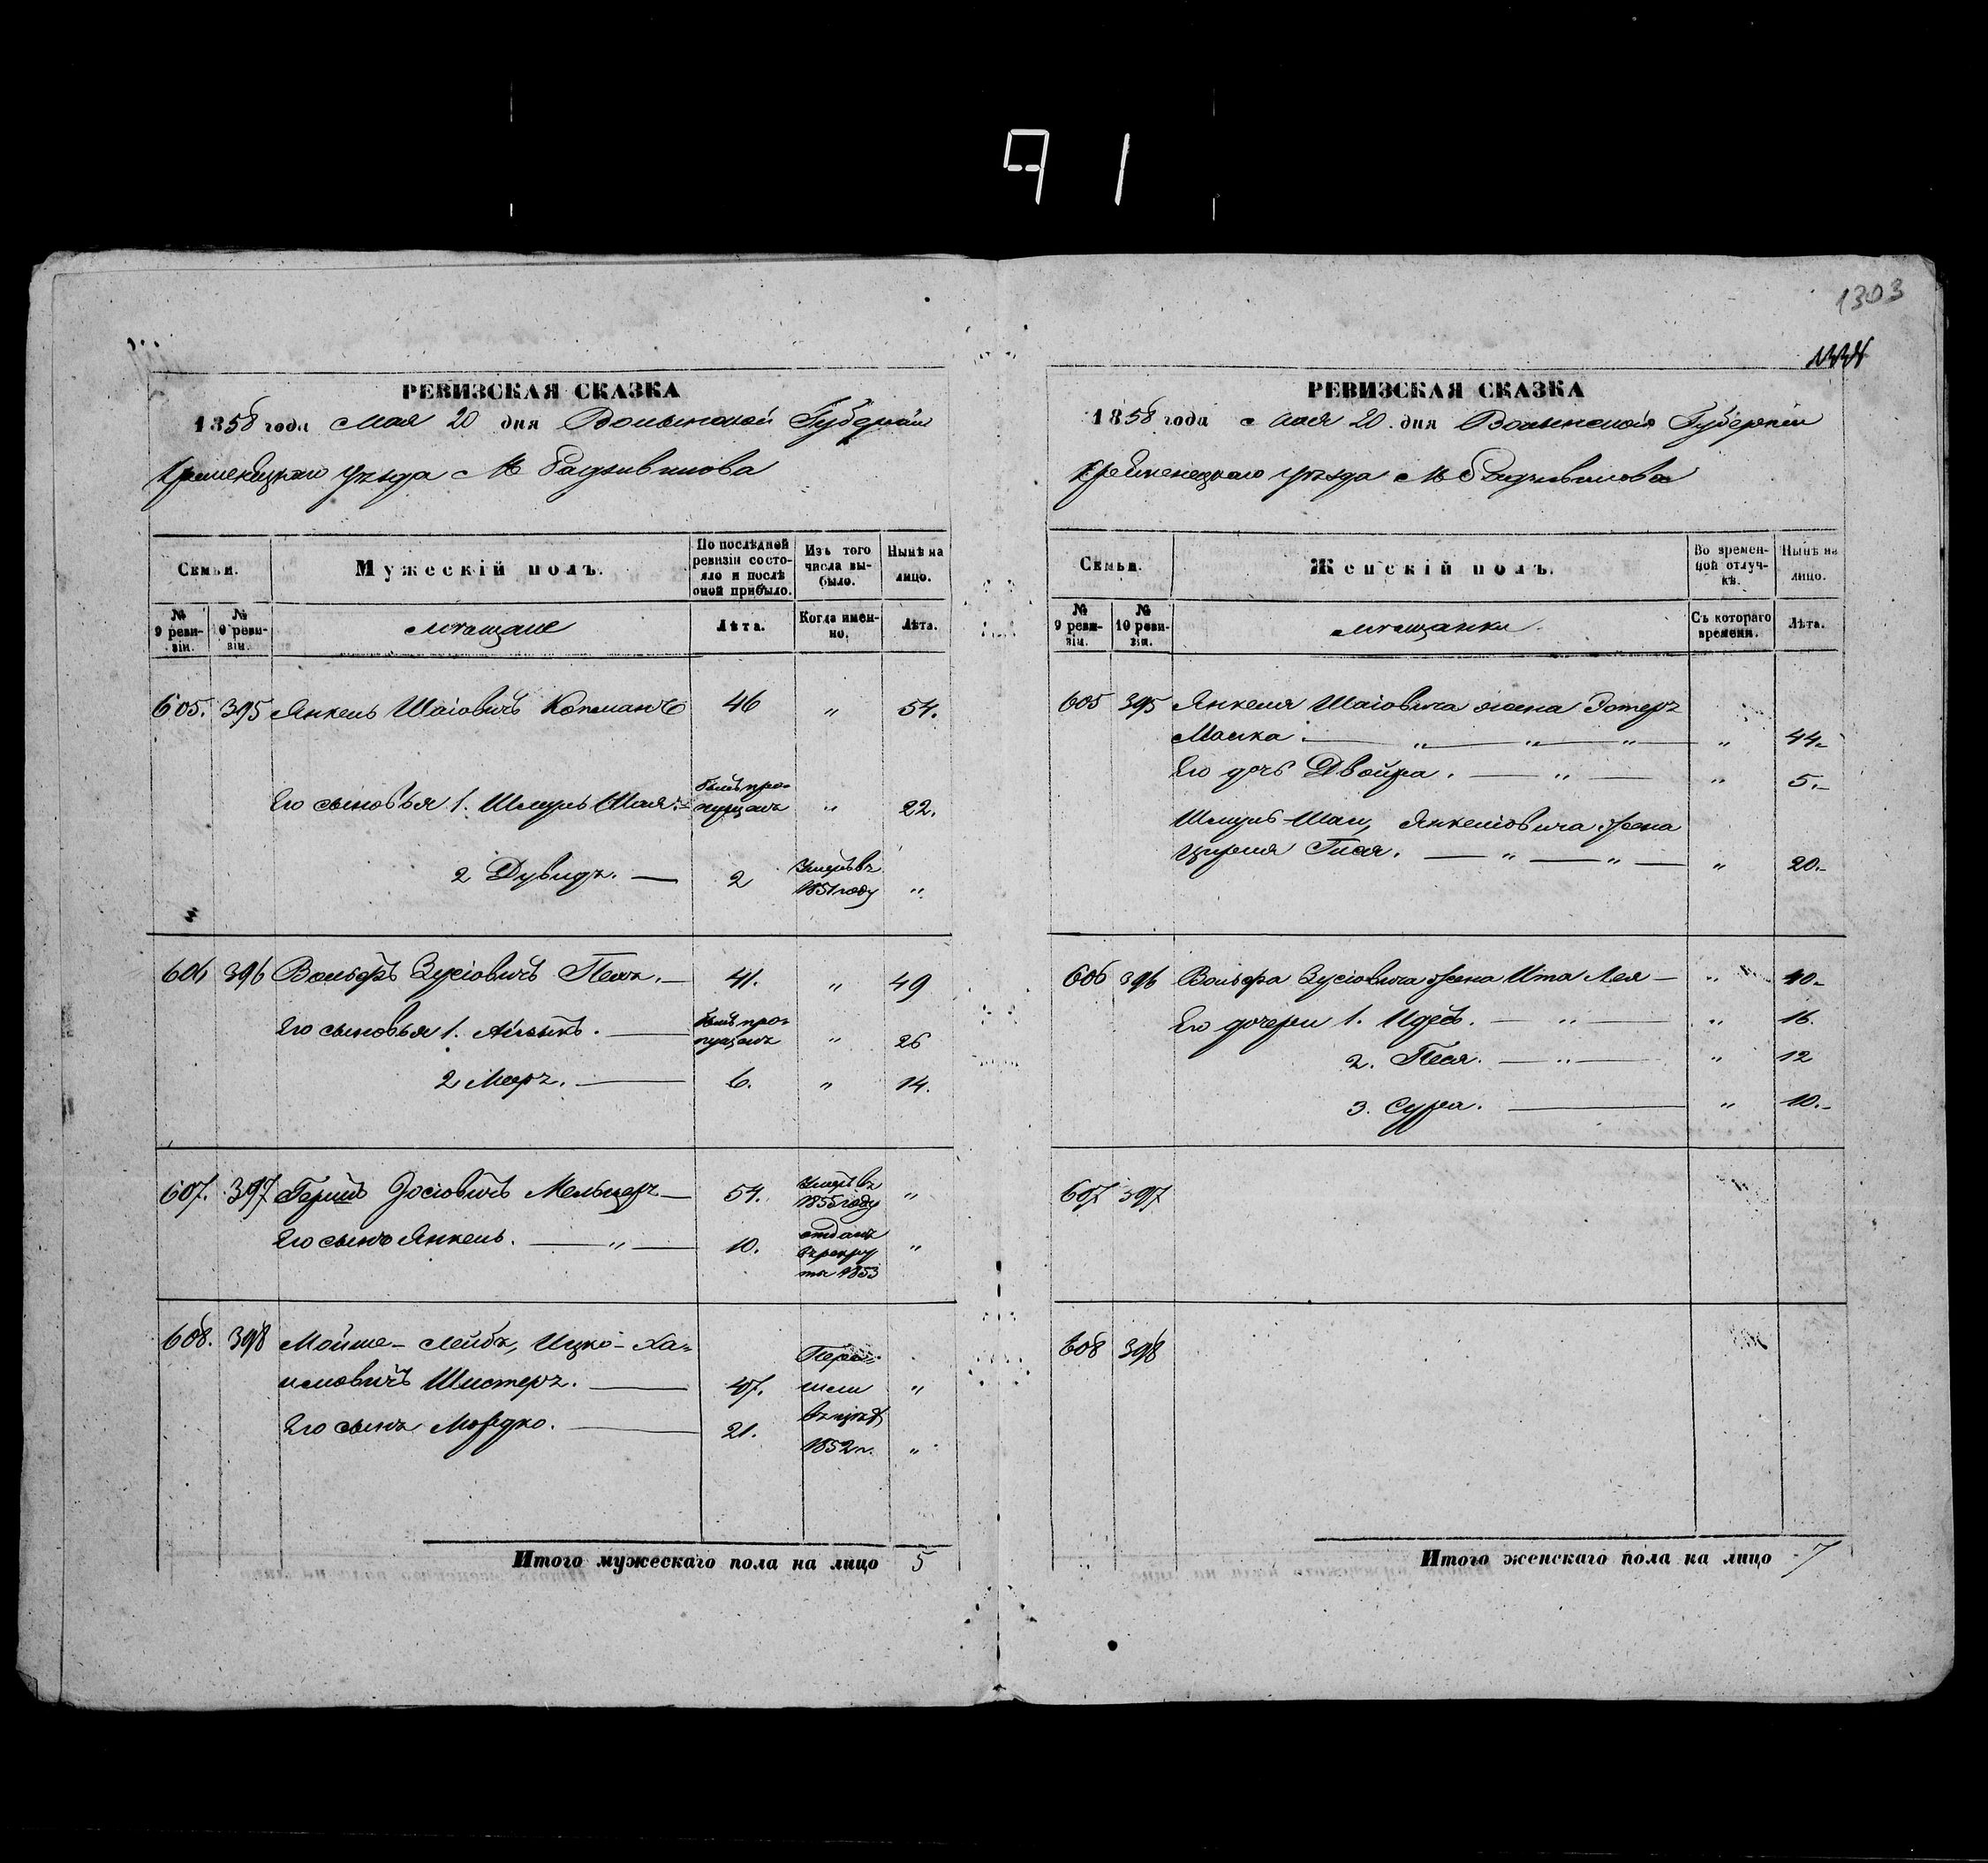 91
1303
РЕВИЗСКАЯ СКАЗКА
1858 года Мая 20 дня Волынской Губерніи
Кременецкаго уѣзда М Радзивилова
Семьи.
Мужескій полъ.
По послѣдней ревизіи состояло и послѣ оной прибыло.
Изъ того числа выбыло.
Нынѣ на лицо.
№ 9 ревизіи.
№ 10 ревизіи.
мѣщане
Лѣта.
Когда именно.
Лѣта.
605. 395 Янкель Шаіовичъ 46 „ 54.
Его сыновья 1. Шмуль Шая. былъ пропущенъ „ 22.
2 Дувидъ. — 2 Умеръ въ 1851 году „
606 396 Вольфъ Зусіовичъ — 41. „ 49
Его сыновья 1. — былъ пропущенъ „ 26
2 Меръ. — 6. „ 14.
607. 397 Гершъ Іосіовичъ Мельцеръ — 54. Умеръ въ 1855 году „
Его сынъ Янкель. — „ — 10. отданъ въ рекруты 1853 „
608. 398 Мойше-Лейбъ, Ицко-Ха=
имовичъ Шистеръ. — 47. Пере=шли „
Его сынъ Мордко. — 21. 1852 г. „
Итого мужескаго пола на лицо 5
РЕВИЗСКАЯ СКАЗКА
1858 года Мая 20 дня Волынской Губерніи
Кременецкаго уѣзда М Радзивилова
Семьи.
Женскій полъ.
Во временной отлучкѣ.
Нынѣ на лицо.
№ 9 ревизіи.
№ 10 ревизіи.
мѣщанки
Съ котораго времени.
Лѣта.
605 395 Янкеля Шаіовича жена Эстеръ
Малка. — „ — „ — „ — „ 44.
Его дочь Двойра. — „ — „ 5.
Шмуль-Шаи, Янкеліовича жена
Гися. — „ — „ — „ 20.
606 396 Вольфа Зусіовича жена Ита Лея — „ 40.
Его дочери 1. Идесъ. — „ — „ 16.
2. Песя. — „ — „ 12
3. Сура. — „ 10.
607 397
608 398
Итого женскаго пола на лицо 7